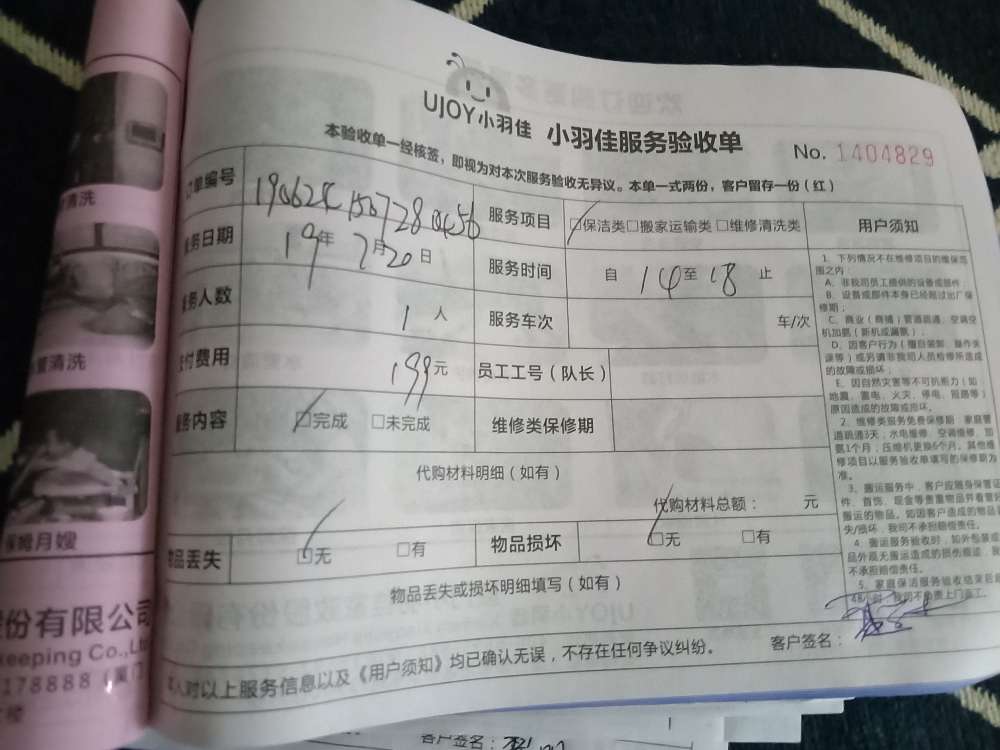 UJOY小羽佳 小羽佳服务验收单 No. 1404829
本验收单一经核签，即视为对本次服务验收无异议。本单一式两份，客户留存一份（红）
订单编号 服务项目 □保洁类□搬家运输类□维修清洗类 用户须知
务日期 19年7月20日 服务时间 自 14至18 止
务人数 1人 服务车次 车/次
支付费用 199元 员工工号（队长）
服务内容 □完成 □未完成 维修类保修期
代购材料明细（如有）
代购材料总额： 元
物品丢失 □无 □有 物品损坏 □无 □有
物品丢失或损坏明细填写（如有）
人对以上服务信息以及《用户须知》均已确认无误，不存在任何争议纠纷。 客户签名：
1、下列情况不在维修项目的维保范
围之内：
A、非我司员工提供的设备或部件；
B、设备或部件本身已经超过出厂保
修期；
C、商业（商铺）管道疏通、空调空
机加氨（新机或漏氨）；
D、因客户行为（擅自装卸、操作失
误等）或另请非我司人员检修所造成
的故障或损坏；
E、因自然灾害等不可抗能力（如
地震、雷电、火灾、停电、阻路等）
原因造成的故障或损坏。
2、维修类服务免费保修期：家庭管
道疏通3天，水电维修、空调维修、加
氨1个月；压缩机更换6个月。其他维
修项目以服务验收单填写的保修期为
准。
3、搬运服务中，客户应随身保管证
件、首饰、现金等贵重物品并看管好
搬运的物品。如因客户造成的物品丢
失/损坏，我司不承担赔偿责任。
4、搬运服务验收时，如外包装或
品外观无搬运造成的损伤痕迹，
不承担赔偿责任。
5、家庭保洁服务验收结束后超
清洗
清洗
保姆月嫂
份有限公司
eeping Co.,Lt
178888（厦门
楼
客户签名：